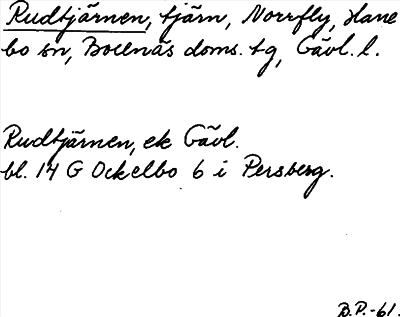 Rudtjärnen, tjärn, Norrfly, Hane
bo sn, Bollnäs doms. tg, Gävl. l.
Rudtjärnen, ek Gävl.
bl. 14 G Ockelbo 6 i Persberg.
B.P.-61.